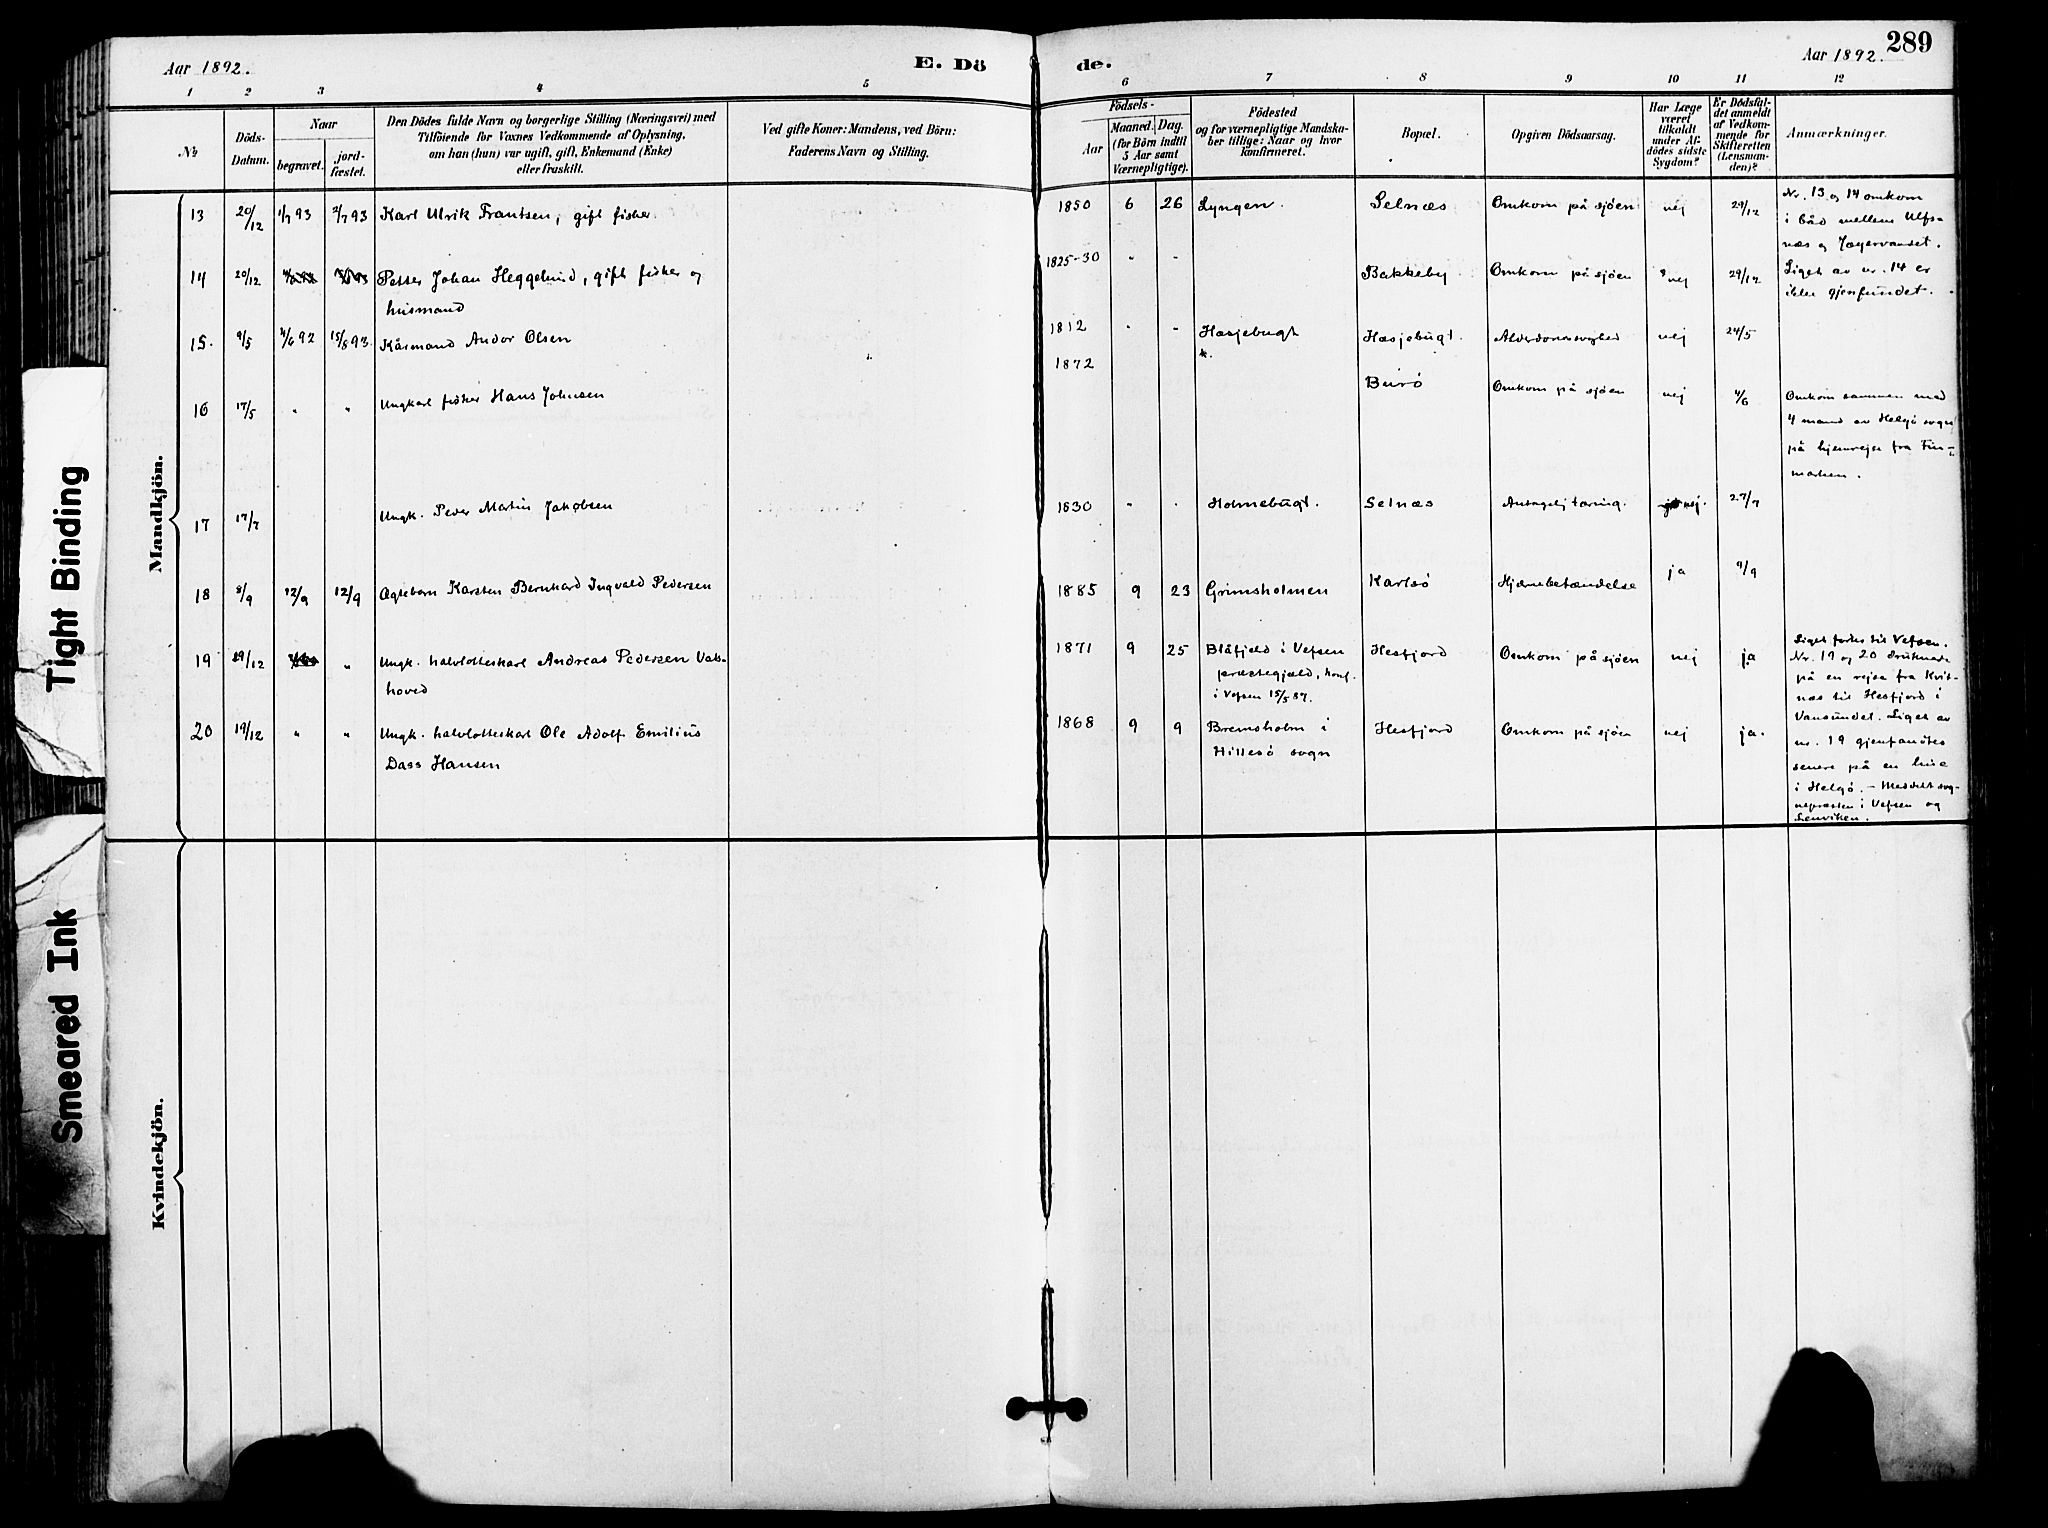 289
Aar 1892. E. Dö de. Aar 1892.
1 2 3 4 5 6 7 8 9 10 11 12
№ Döds-Datum. Naar begravet. jordfæstet.
Den Dödes fulde Navn og borgerlige Stilling (Næringsvei) med
Tilföiende for Voxnes Vedkommende af Oplysning,
om han (hun) var ugift, gift, Enkemand (Enke)
eller fraskilt.
Ved gifte Koner: Mandens, ved Börn:
Faderens Navn og Stilling.
Födsels-
Aar Maaned. Dag.
(for Börn indtil
5 Aar samt
Værnepligtige).
Födested
og for værnepligtige Mandska-
ber tillige: Naar og hvor
konfirmeret.
Bopæl.
Opgiven Dödsaarsag.
Har Læge
været
tilkaldt
under Af-
dödes sidste
Sygdom?
Er Dödsfal-
det anmeldt
af Vedkom-
mende for
Skifteretten
(Lensman-
den)?
Anmærkninger.
Mandkjön.
13 20/12 1/7 93 2/7 93 Karl Ulrik Frantsen, gift fisker. 1850 6 26 Lyngen. Selnæs Omkom på sjöen nej 29/12
Nr. 13 og 14 omkom
i båd mellem Ulfs-
næs og Jægervandet.
14 20/12 Petter Johan Heggelund, gift fisker og
husmand 1825-30 " " Bakkeby Omkom på sjöen nej 29/12
Liget av nr. 14 er
ikke gjenfundet.
15. 9/5 4/6 92 15/8 93. Kårmand Andor Olsen 1812 " " Hasjebugt Hasjebugt. Alderdomssvaghed nej 24/5
16 17/5 " " Ungkarl fisker Hans Johnsen 1872 Omkom på sjöen nej 4/6
Omkom sammen med
4 mand av Helgö sogn
på hjemrejse fra Fin-
marken.
17 17/7 Ungk. Peder Martin Jakobsen 1830 " " Holmebugt. Selnæs Antagelig tæring. nej. 27/7
18 8/9 12/9 12/9 Ægtebarn Karsten Bernhard Ingvald Pedersen 1885 9 23 Grimsholmen Karlsö Hjærnebetændelse ja 9/9
19 19/12 " Ungk. halvlotteskarl Andreas Pedersen Vals-
hoved 1871 9 25 Blåfjeld i Vefsen
præstegjæld, konf.
i Vefsen 15/5 87. Hesfjord Omkom på sjöen nej ja
Liget førtes til Vefsen.
Nr. 19 og 20 druknede
på en rejse fra Kvit-
næs til Hesfjord i
Vansundet. Liget av
nr. 19 gjenfandtes
senere på en
i Helgö. – Meddelt sog-
nepræsten i Vefsen og
Lenviken.
20 19/12 " " Ungk. halvlotteskarl Ole Adolf Emilius
Dass Hansen 1868 9 9 Bremsholm i
Hillesö sogn Hesfjord Omkom på sjöen nej ja.
Kvindekjön.
Tight Binding
Smeared Ink